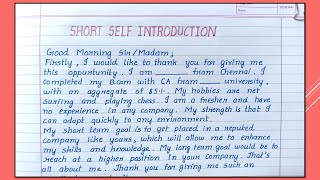 SHORT SELF INTRODUCTION
Good Morning Sir/Madam,
Firstly, I would like to thank you for giving me
this opportunity. I am ______ from Chennai. I
completed my B.com with CA from ______ university,
with an aggregate of 85.1%. My hobbies are net
surfing and playing chess. I am a fresher and have
no experience in any company. My strength is that I
can adapt quickly to any environment.
My short term goal is to get placed in a reputed
company like yours, which will allow me to enhance
my skills and knowledge. My long term goal would be to
reach at a higher position in your company. That's
all about me. Thank you for giving me such an